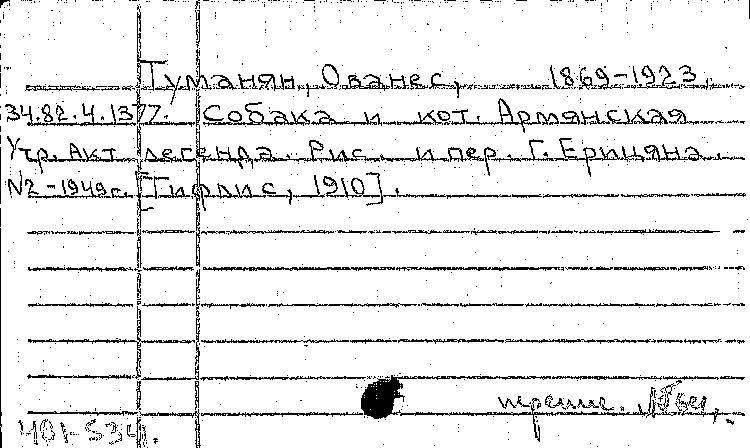 Туманян, Ованес, 1869-1923.
34.82.4.1377. Собака и кот. Армянская
Утр. Акт легенда. Рис. и пер. Г. Ерицяна.
N2-1949г. [Тифлис, 1910].
401-534.